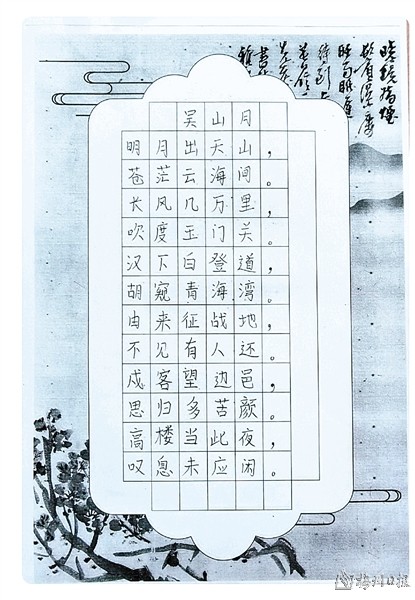 吴山月
明月出天山，
苍茫云海间。
长风几万里，
吹度玉门关。
汉下白登道，
胡窥青海湾。
由来征战地，
不见有人还。
戍客望边邑，
思归多苦颜。
高楼当此夜，
叹息未应闲。